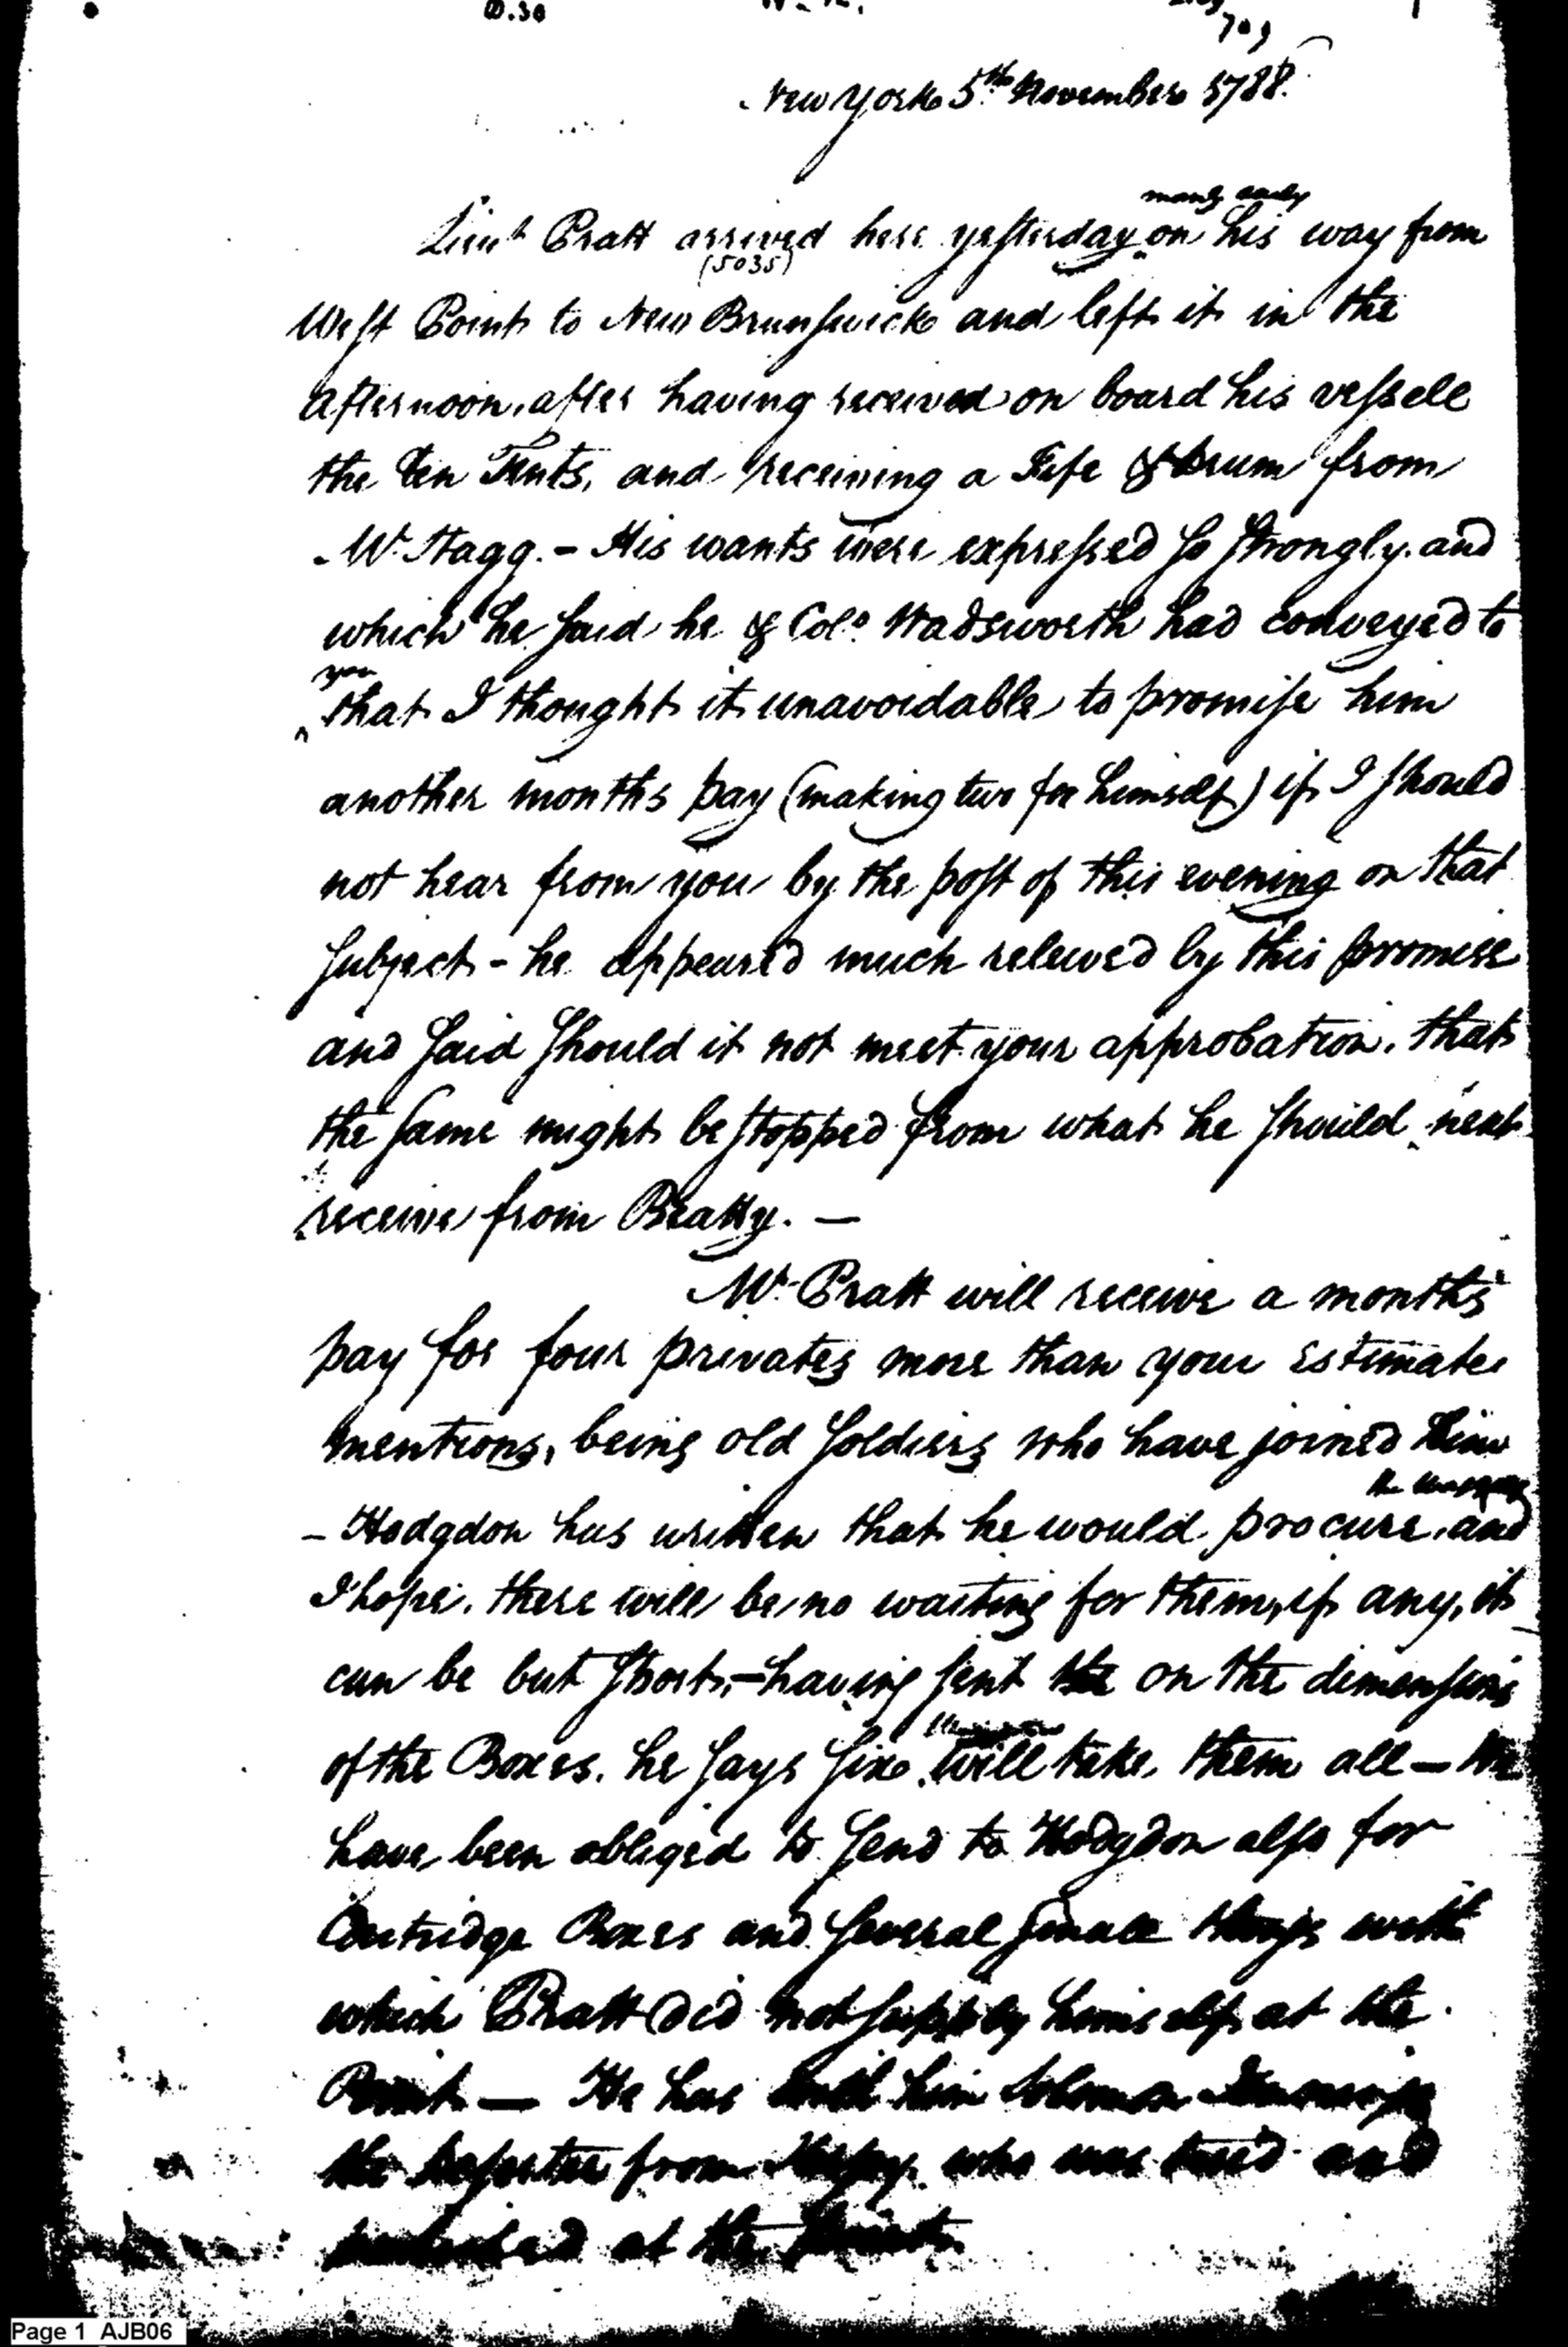 D.30
709
New York 5th November 1788.
early
Lieut Pratt arrived here yesterday on his way from
(5035)
West Point to New Brunswick and left it in the
afternoon, after having received on board his vessele
the Ten Tents, and receiving a Fife & Drum from
Mr. Stagg. - His wants were expressed so strongly and
which he said he & Colo. Wadsworth had conveyed to
you
that I thought it unavoidable to promise him
another months pay (making two for himself) if I should
not hear from you by the post of this evening on that
subject - he appeared much releived by this promise
and said should it not meet your approbation, that
the same might be stopped from what he should next
receive from Beatty. —
Mr. Pratt will receive a months
pay for four privates more than your estimate
mentions, being old soldiers who have joined him
the
- Hodgdon has written that he would procure, and
I hope, there will be no waiting for them, if any, it
can be but short, - having sent the on the dimensions
of the Boxes. he says six will take them all — We
have been obliged to send to Hodgdon also for
Cartridge Boxes and several small things with
which Pratt did not supply himself at the
Point — He has with him Solomon
the deserter from who was tried and
at the Point.
Page 1 AJB06